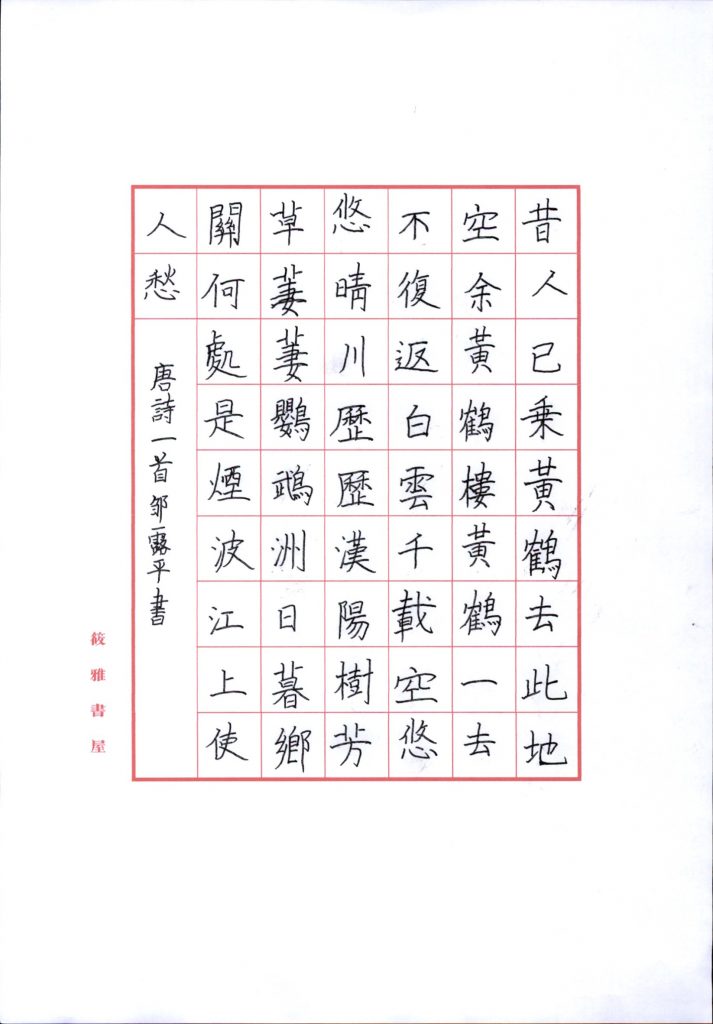 昔人已乘黃鶴去此地
空余黃鶴樓黃鶴一去
不復返白雲千載空悠
悠晴川歷歷漢陽樹芳
草萋萋鸚鵡洲日暮鄉
關何處是煙波江上使
人愁
唐詩一首邹露平書
筱雅書屋